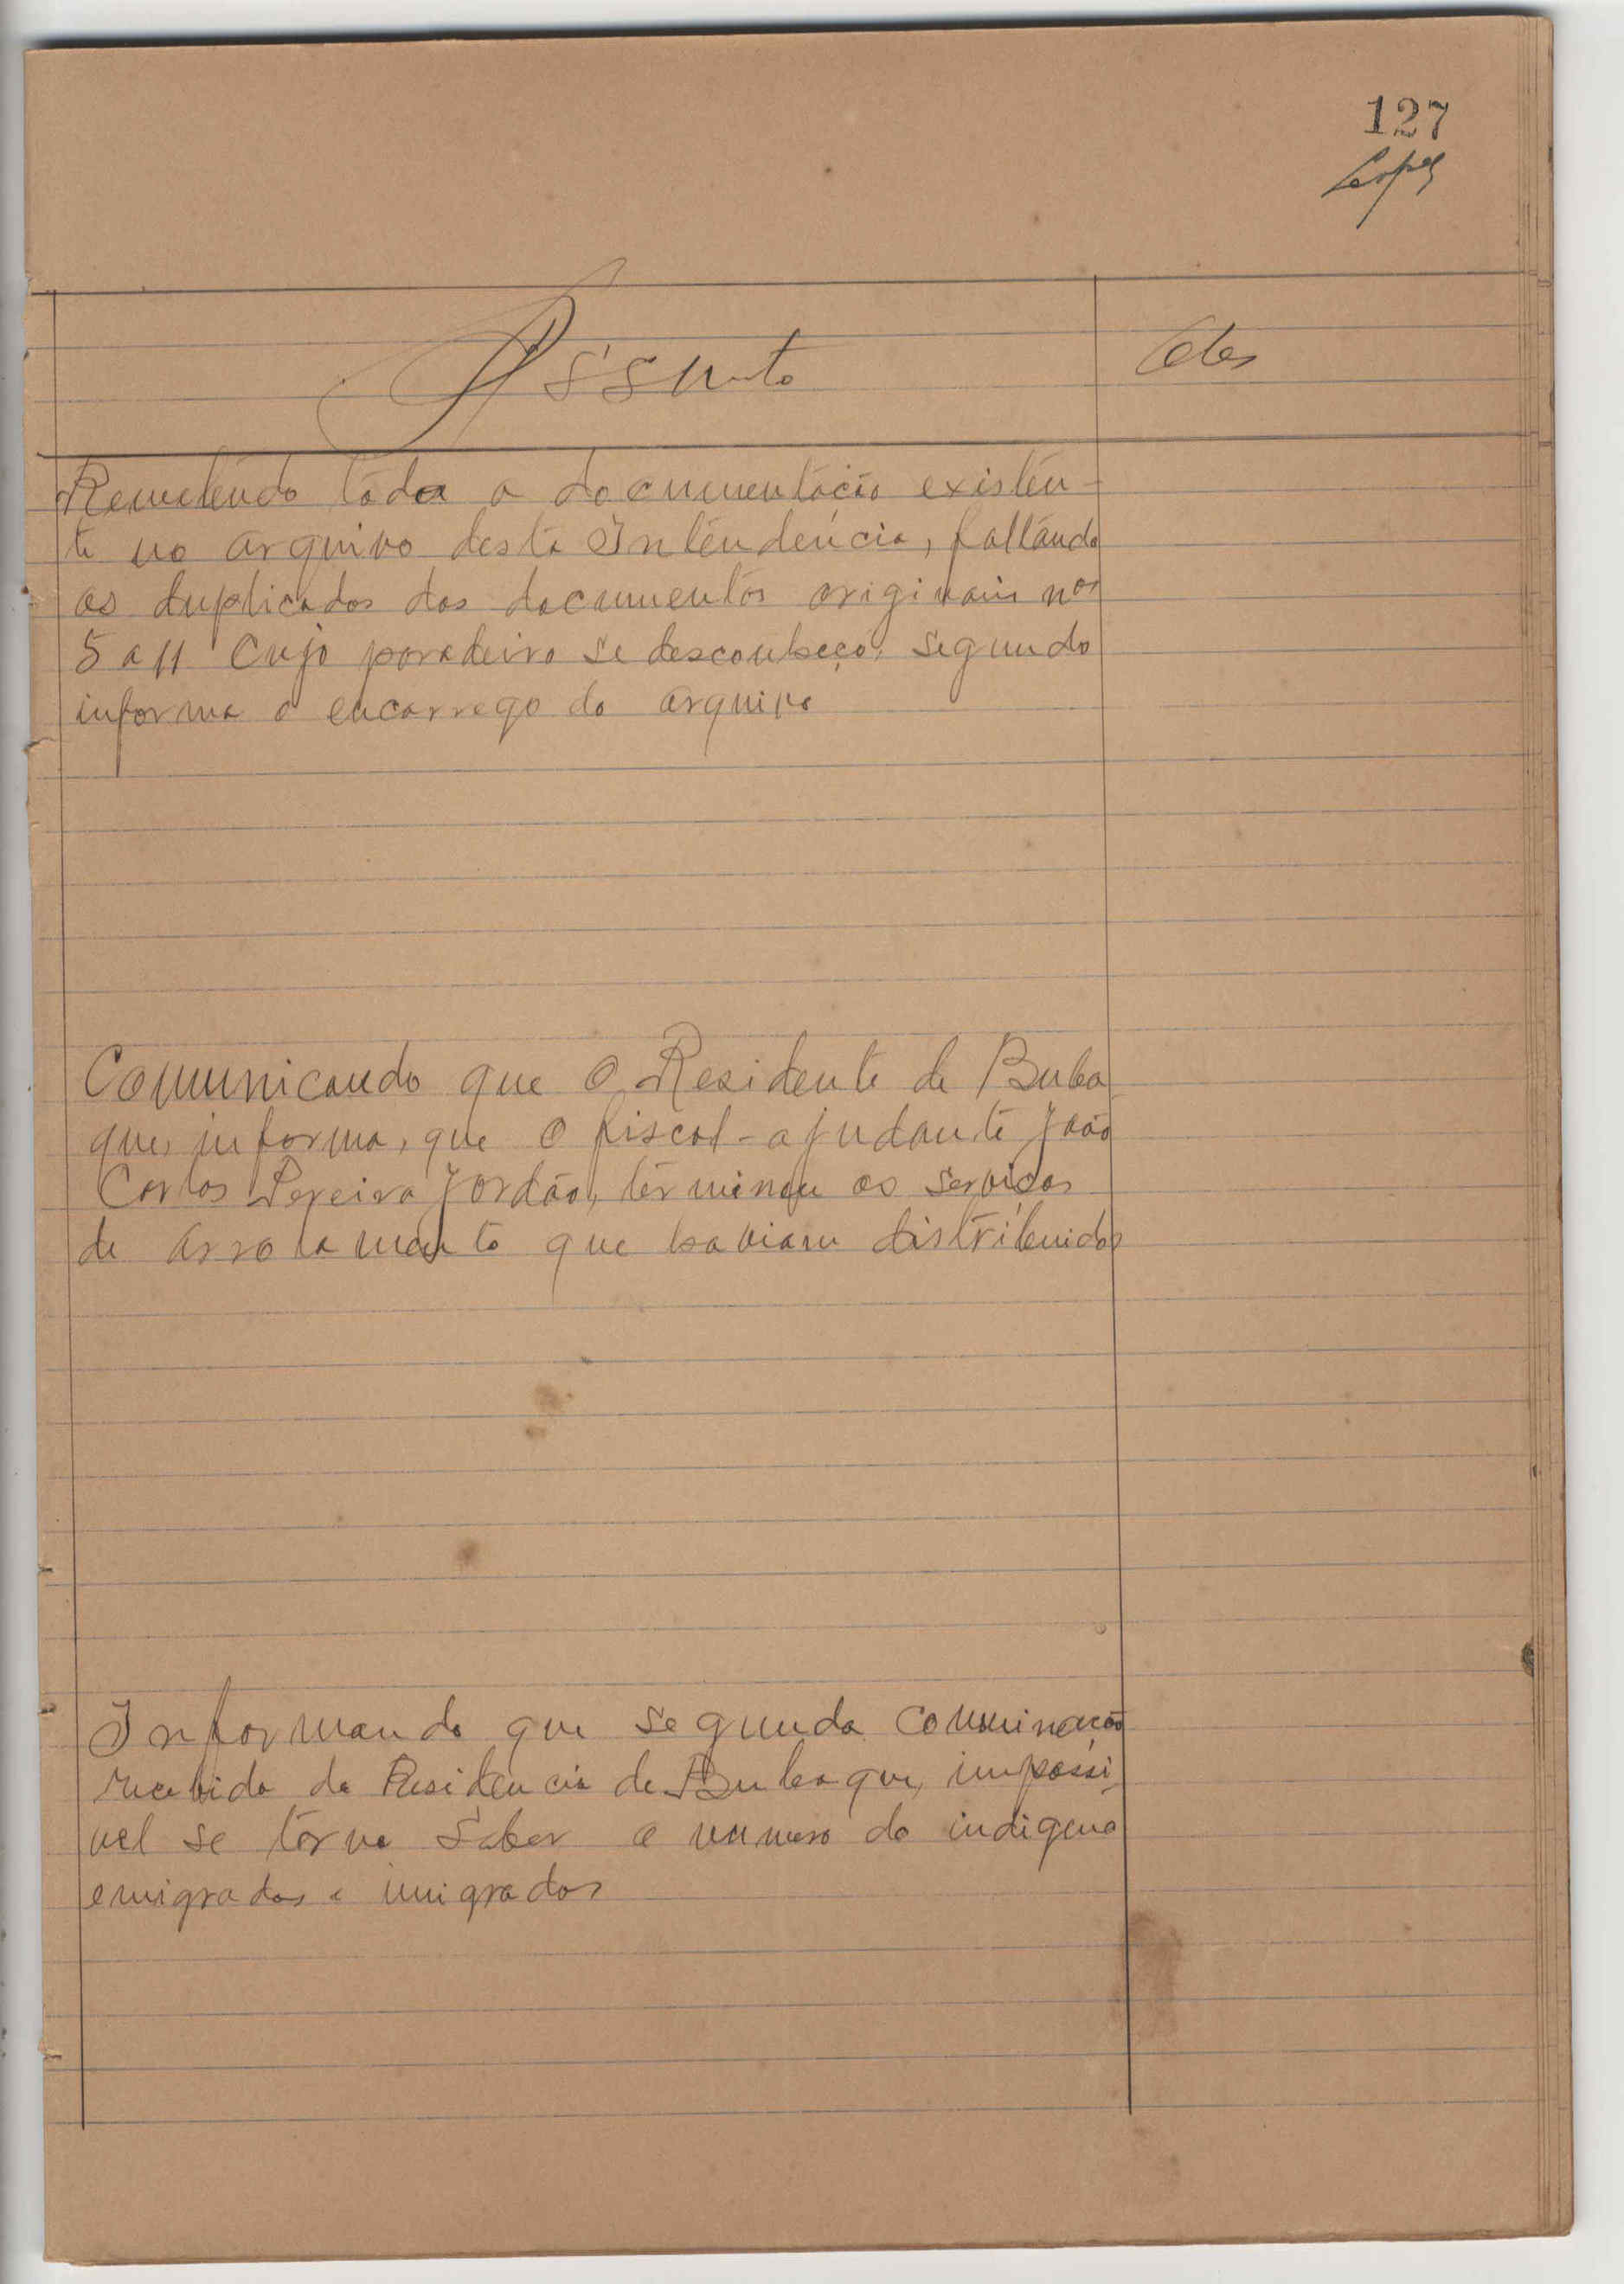 127
Lopes
Assunto
Remetendo toda a documentação existen-
te no arquivo desta Intendência, faltando
os duplicados dos documentos originais nos
5 a 11 cujo paradeiro se desconheço, segundo
informa o encarrego do arquivo
Comunicando que o Residente de Buba
que, informa, que o fiscal-ajudante João
Carlos Pereira Jordão, terminou os serviços
de arrolamento que haviam distribuidos
Informando que segundo comuninação
recebida da Residencia de Bubaque, impossi
vel se torna saber o numero do indigena
emigrados e imigrados